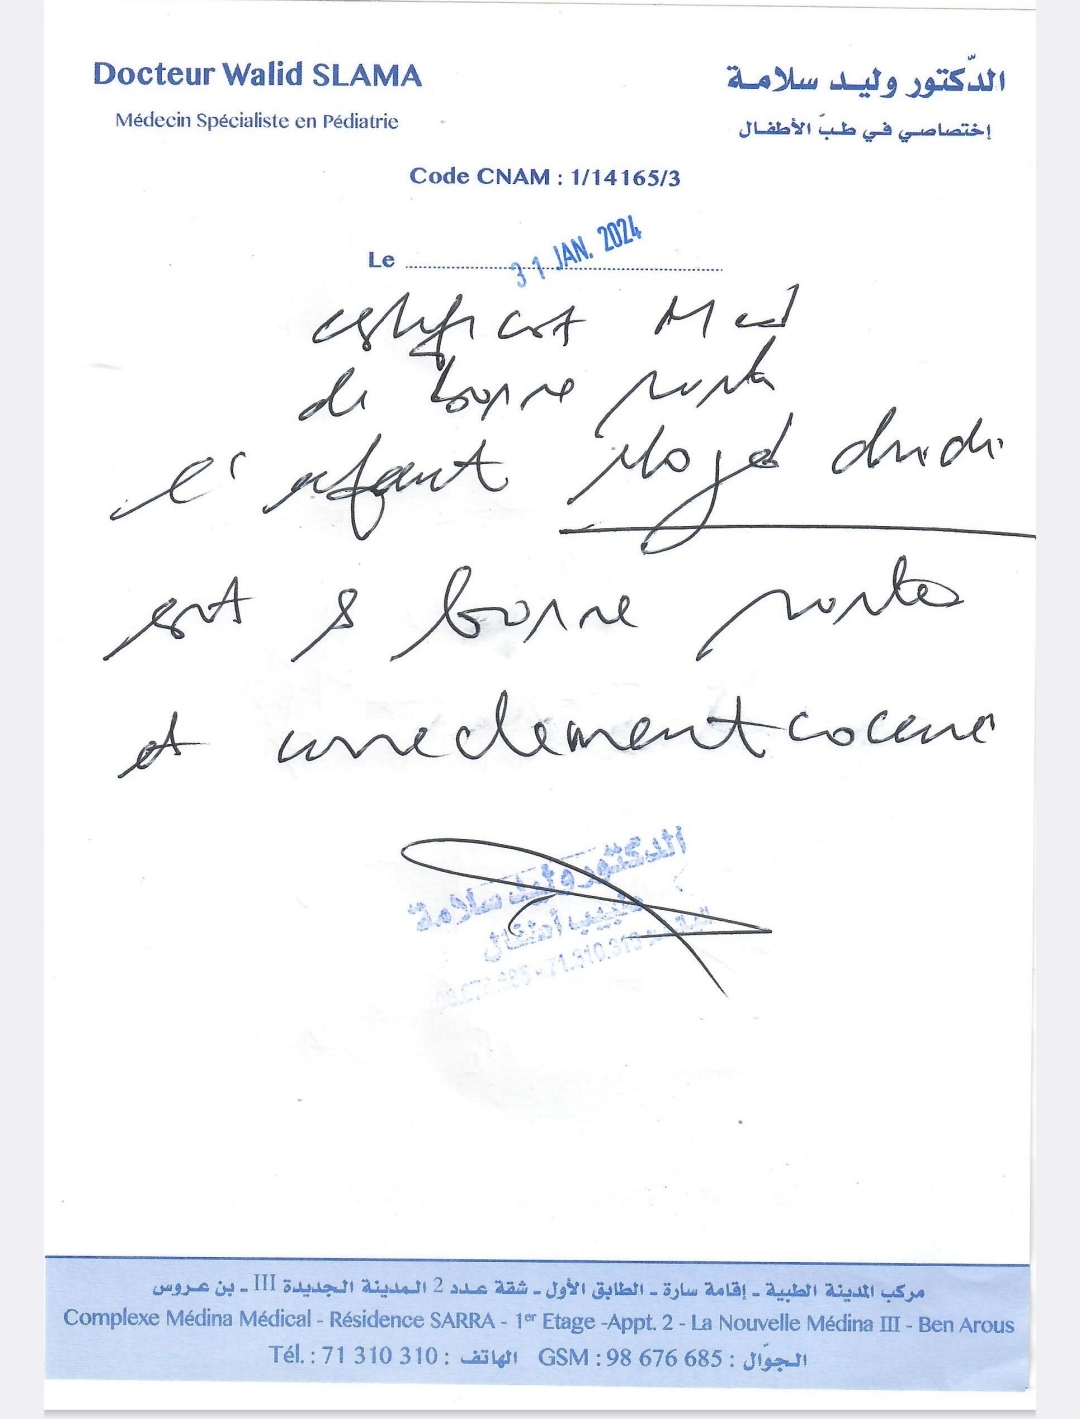 Docteur Walid SLAMA
Médecin Spécialiste en Pédiatrie
الدّكتور وليد سلامة
إختصاصي في طبّ الأطفال
Code CNAM : 1/14165/3
Le 31 JAN. 2024
certificat Med
de bonne
l'enfant dridi
est bonne
et
الدكتور وليد سلامة
طبيب أطفال
71.310.310
مركب المدينة الطبية - إقامة سارة - الطابق الأول - شقة عدد 2 المدينة الجديدة III - بن عروس
Complexe Médina Médical - Résidence SARRA - 1er Etage -Appt. 2 - La Nouvelle Médina III - Ben Arous
Tél. : 71 310 310 : الهاتف GSM : 98 676 685 : الجوّال